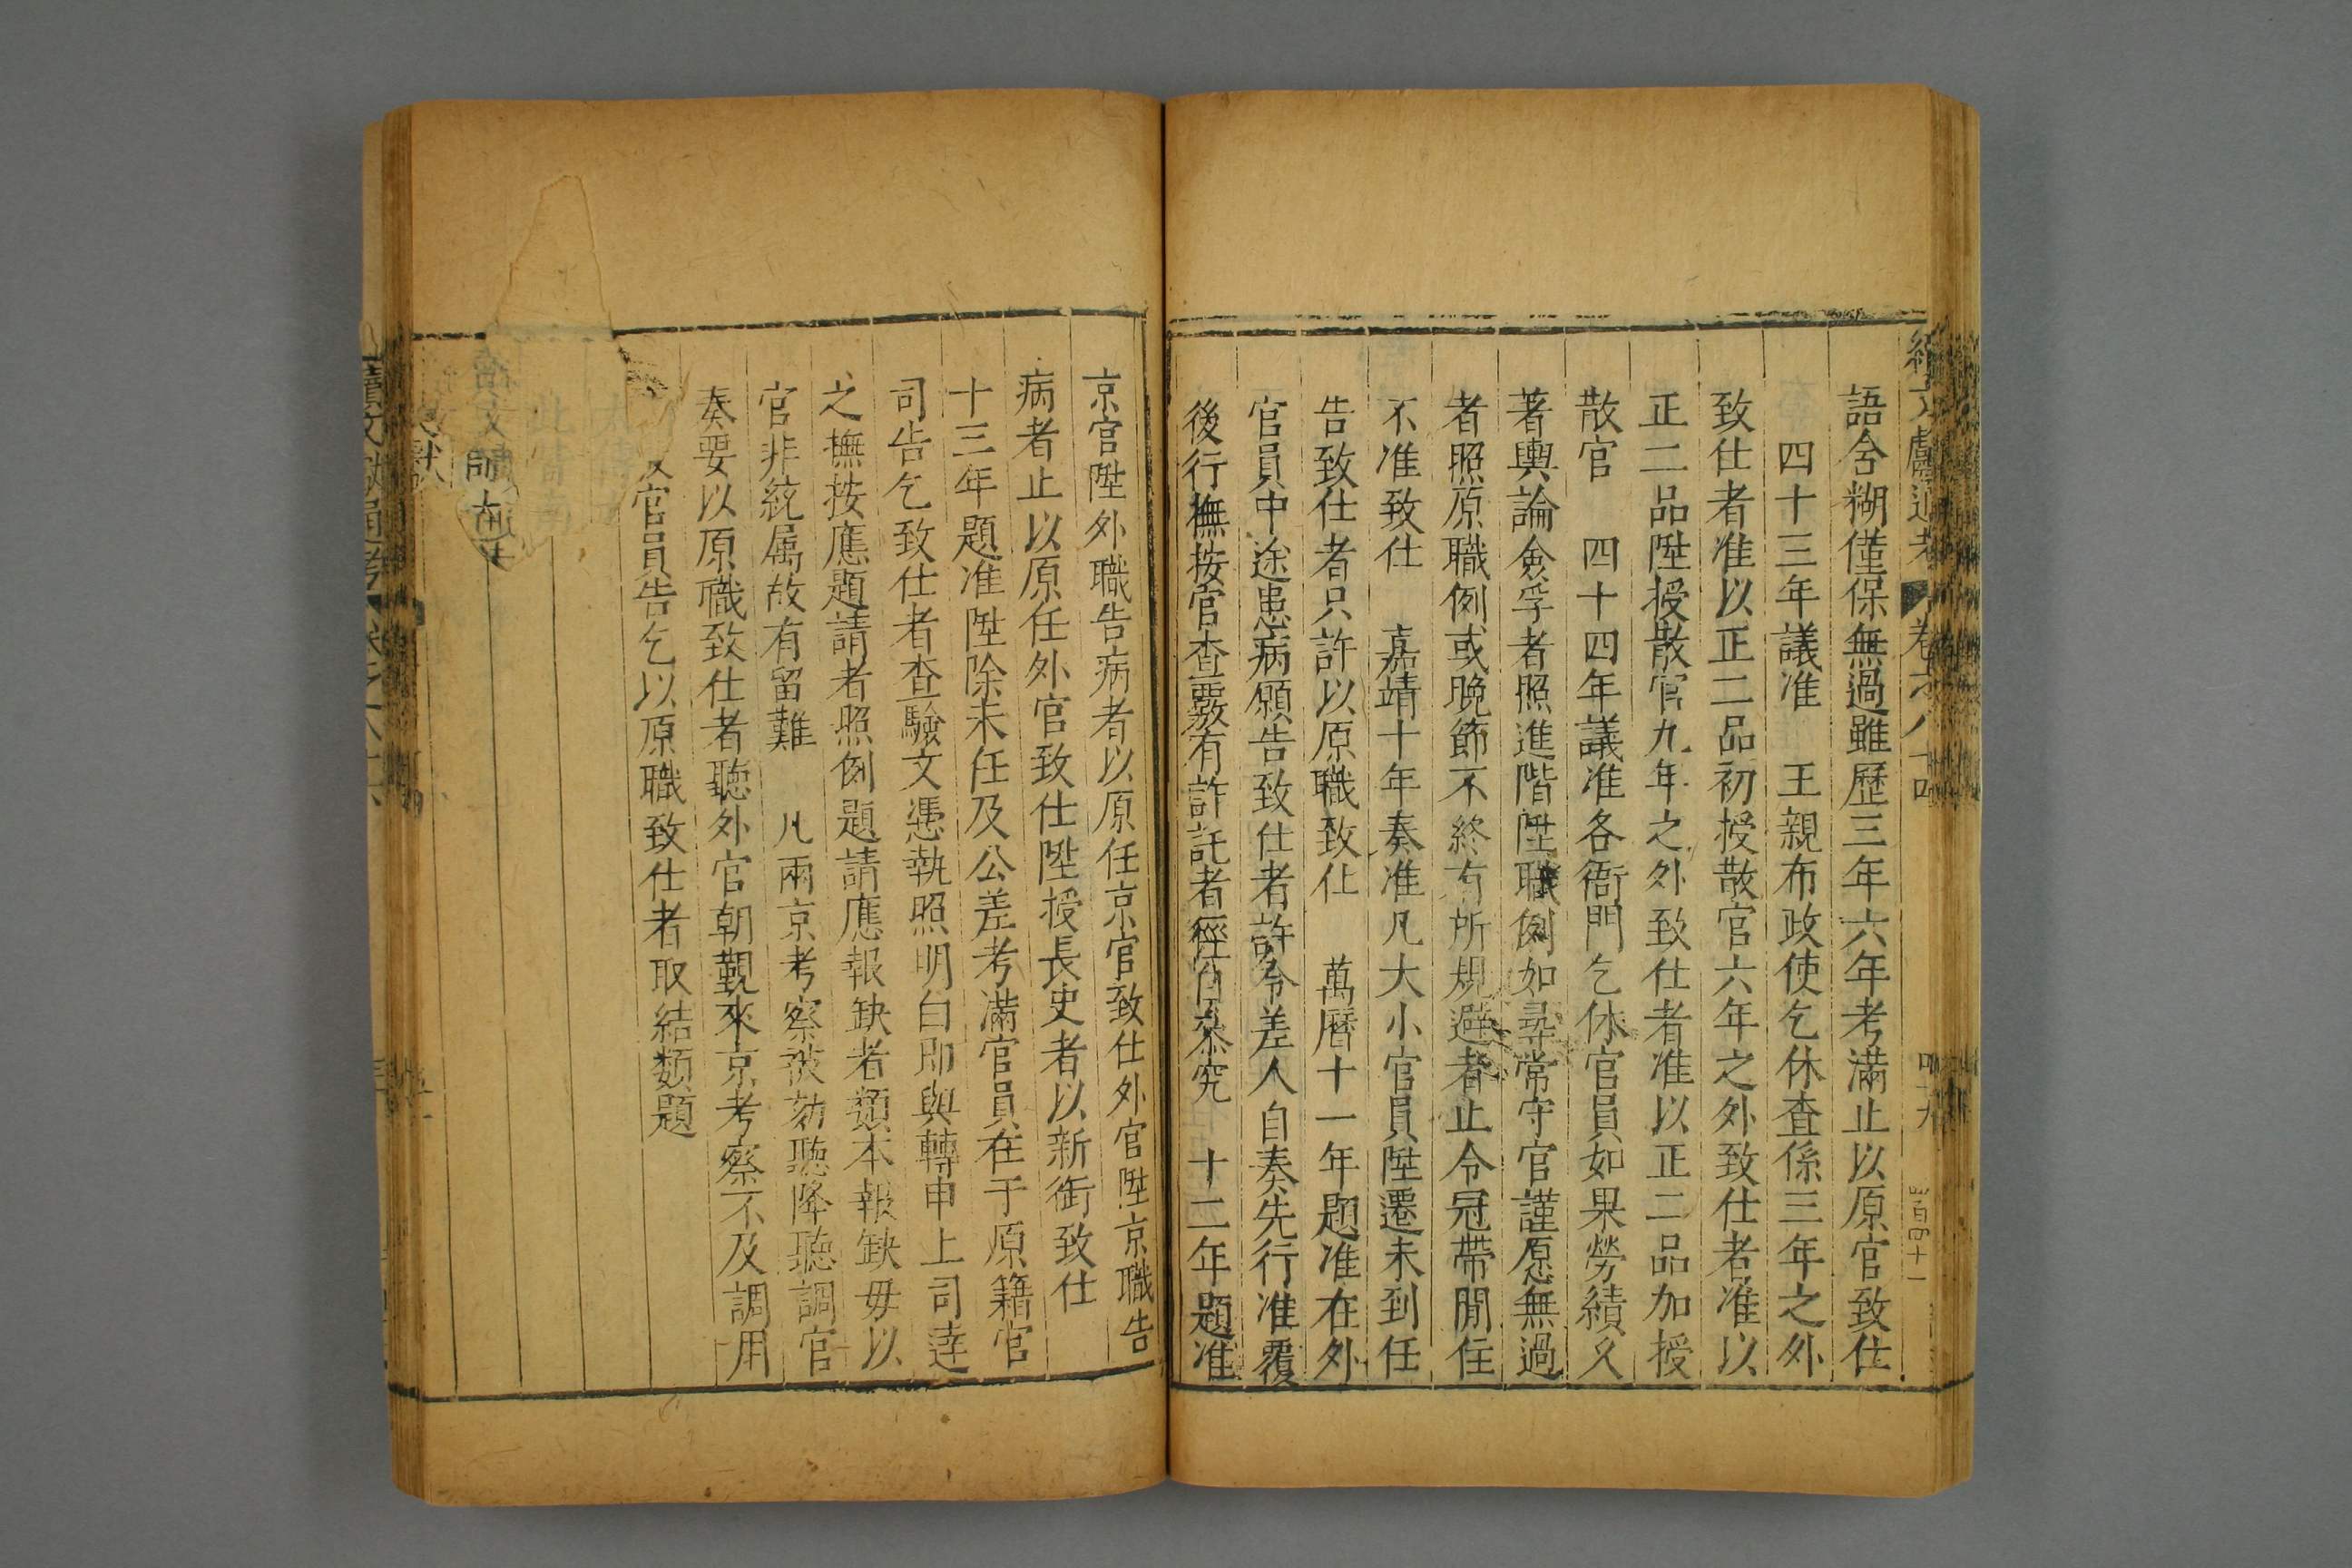 語含糊僅保無過雖歷三年六年考滿止以原官致仕
四十三年議准 王親布政使乞休查係三年之外
致仕者准以正二品初授散官六年之外致仕者准以
正二品陞授散官九年之外致仕者准以正二品加授
散官 四十四年議准各衙門乞休官員如果勞績久
著輿論僉孚者照進階陞職例如尋常守官謹愿無過
者照原職例或晚節不終有所規避者止令冠帶閒住
不准致仕 嘉靖十年奏准凡大小官員陞遷未到任
告致仕者只許以原職致仕 萬曆十一年題准在外
官員中途患病願告致仕者許令差人自奏先行准覆
後行撫按官查覈有詐託者徑自叅究 十二年題准
京官陞外職告病者以原任京官致仕外官陞京職告
病者止以原任外官致仕陞授長史者以新銜致仕
十三年題准陞除未任及公差考滿官員在于原籍官
司告乞致仕者查驗文憑執照明白即與轉申上司達
之撫按應題請者照例題請應報缺者類本報缺毋以
官非統属故有留難 凡兩京考察被劾聽降聽調官
奏要以原職致仕者聽外官朝覲來京考察不及調用
官員告乞以原職致仕者取結類題